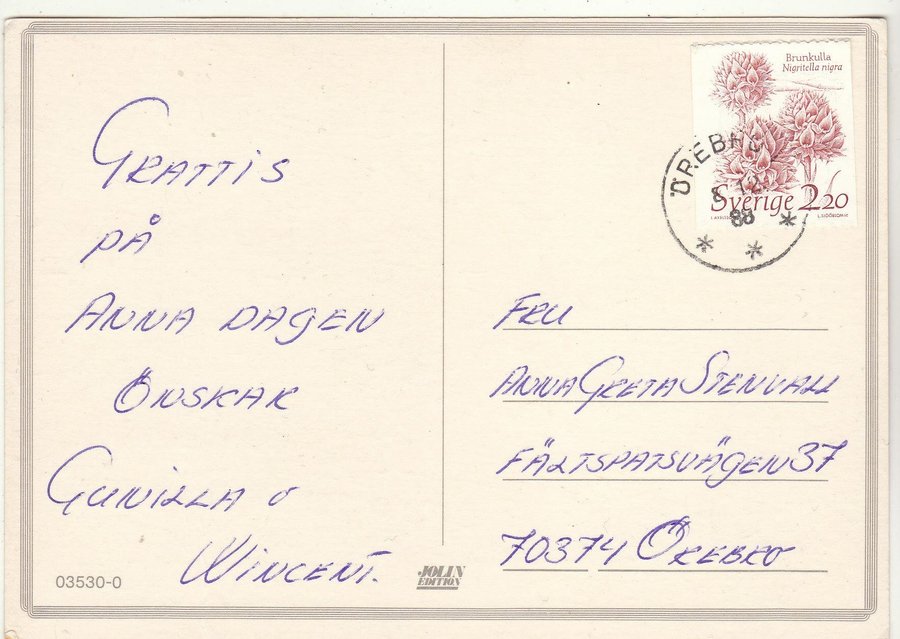 GRATTIS
PÅ
ANNA DAGEN
ÖNSKAR
GUNILLA O
WINCENT.
03530-0
JOLIN
EDITION
Brunkulla
Nigritella nigra
Sverige 2.20
ÖREBRO
8 12
88
* * *
FRU
ANNA GRETA STENVALL
FÄLTSPATSVÄGEN 37
70374 ÖREBRO